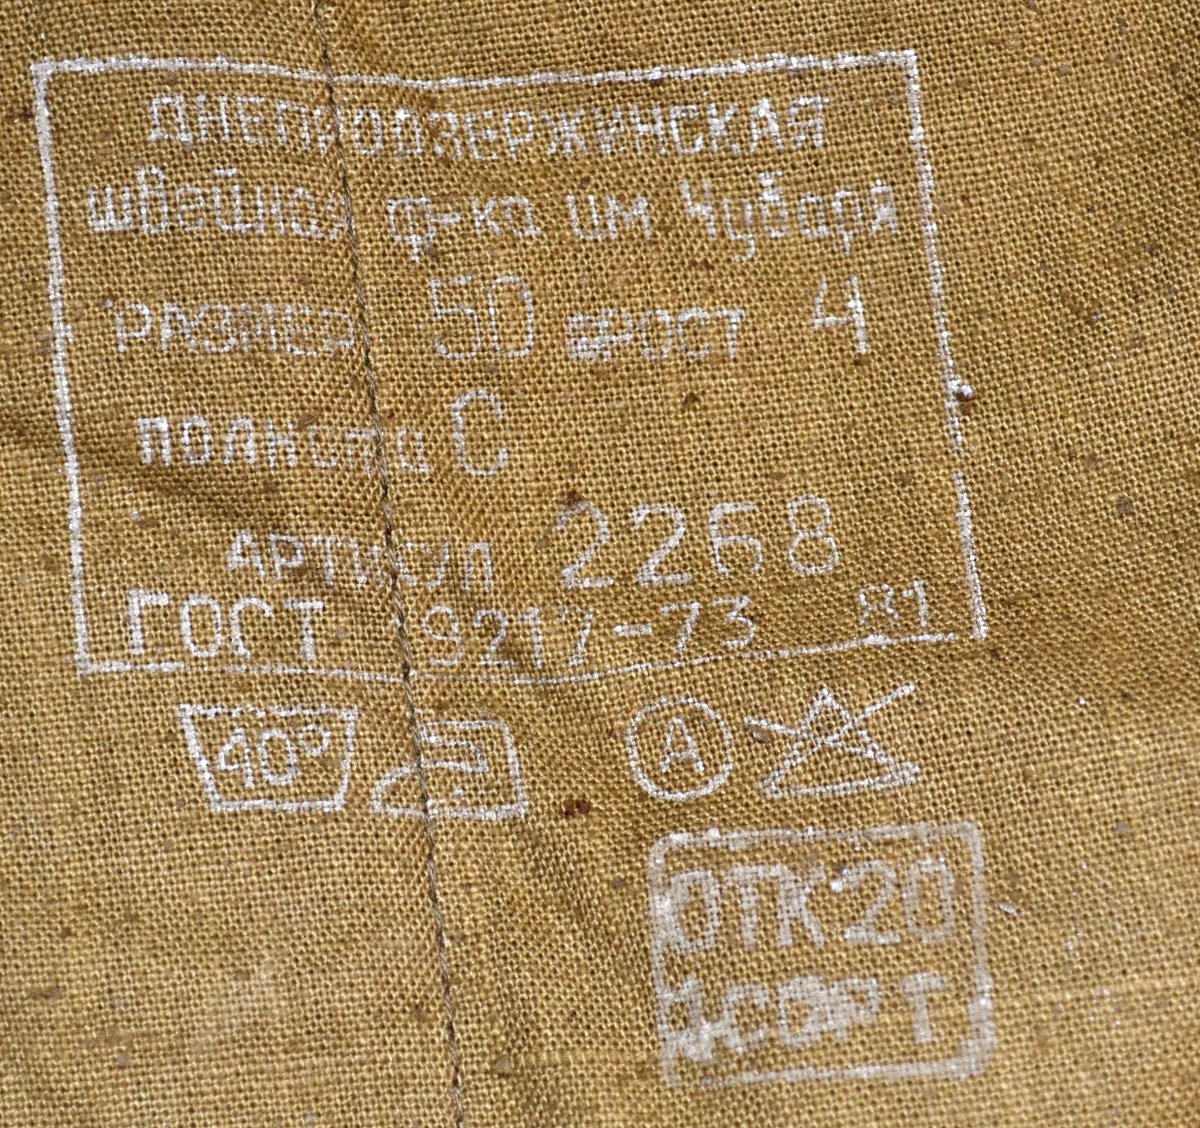 ДНЕПРОДЗЕРЖИНСКАЯ
швейная ф-ка им Чубаря
РАЗМЕР 50 РОСТ 4
полнота С
АРТИКУЛ 2268
ГОСТ 9217-73 81
40° А
ОТК 20
1 СОРТ